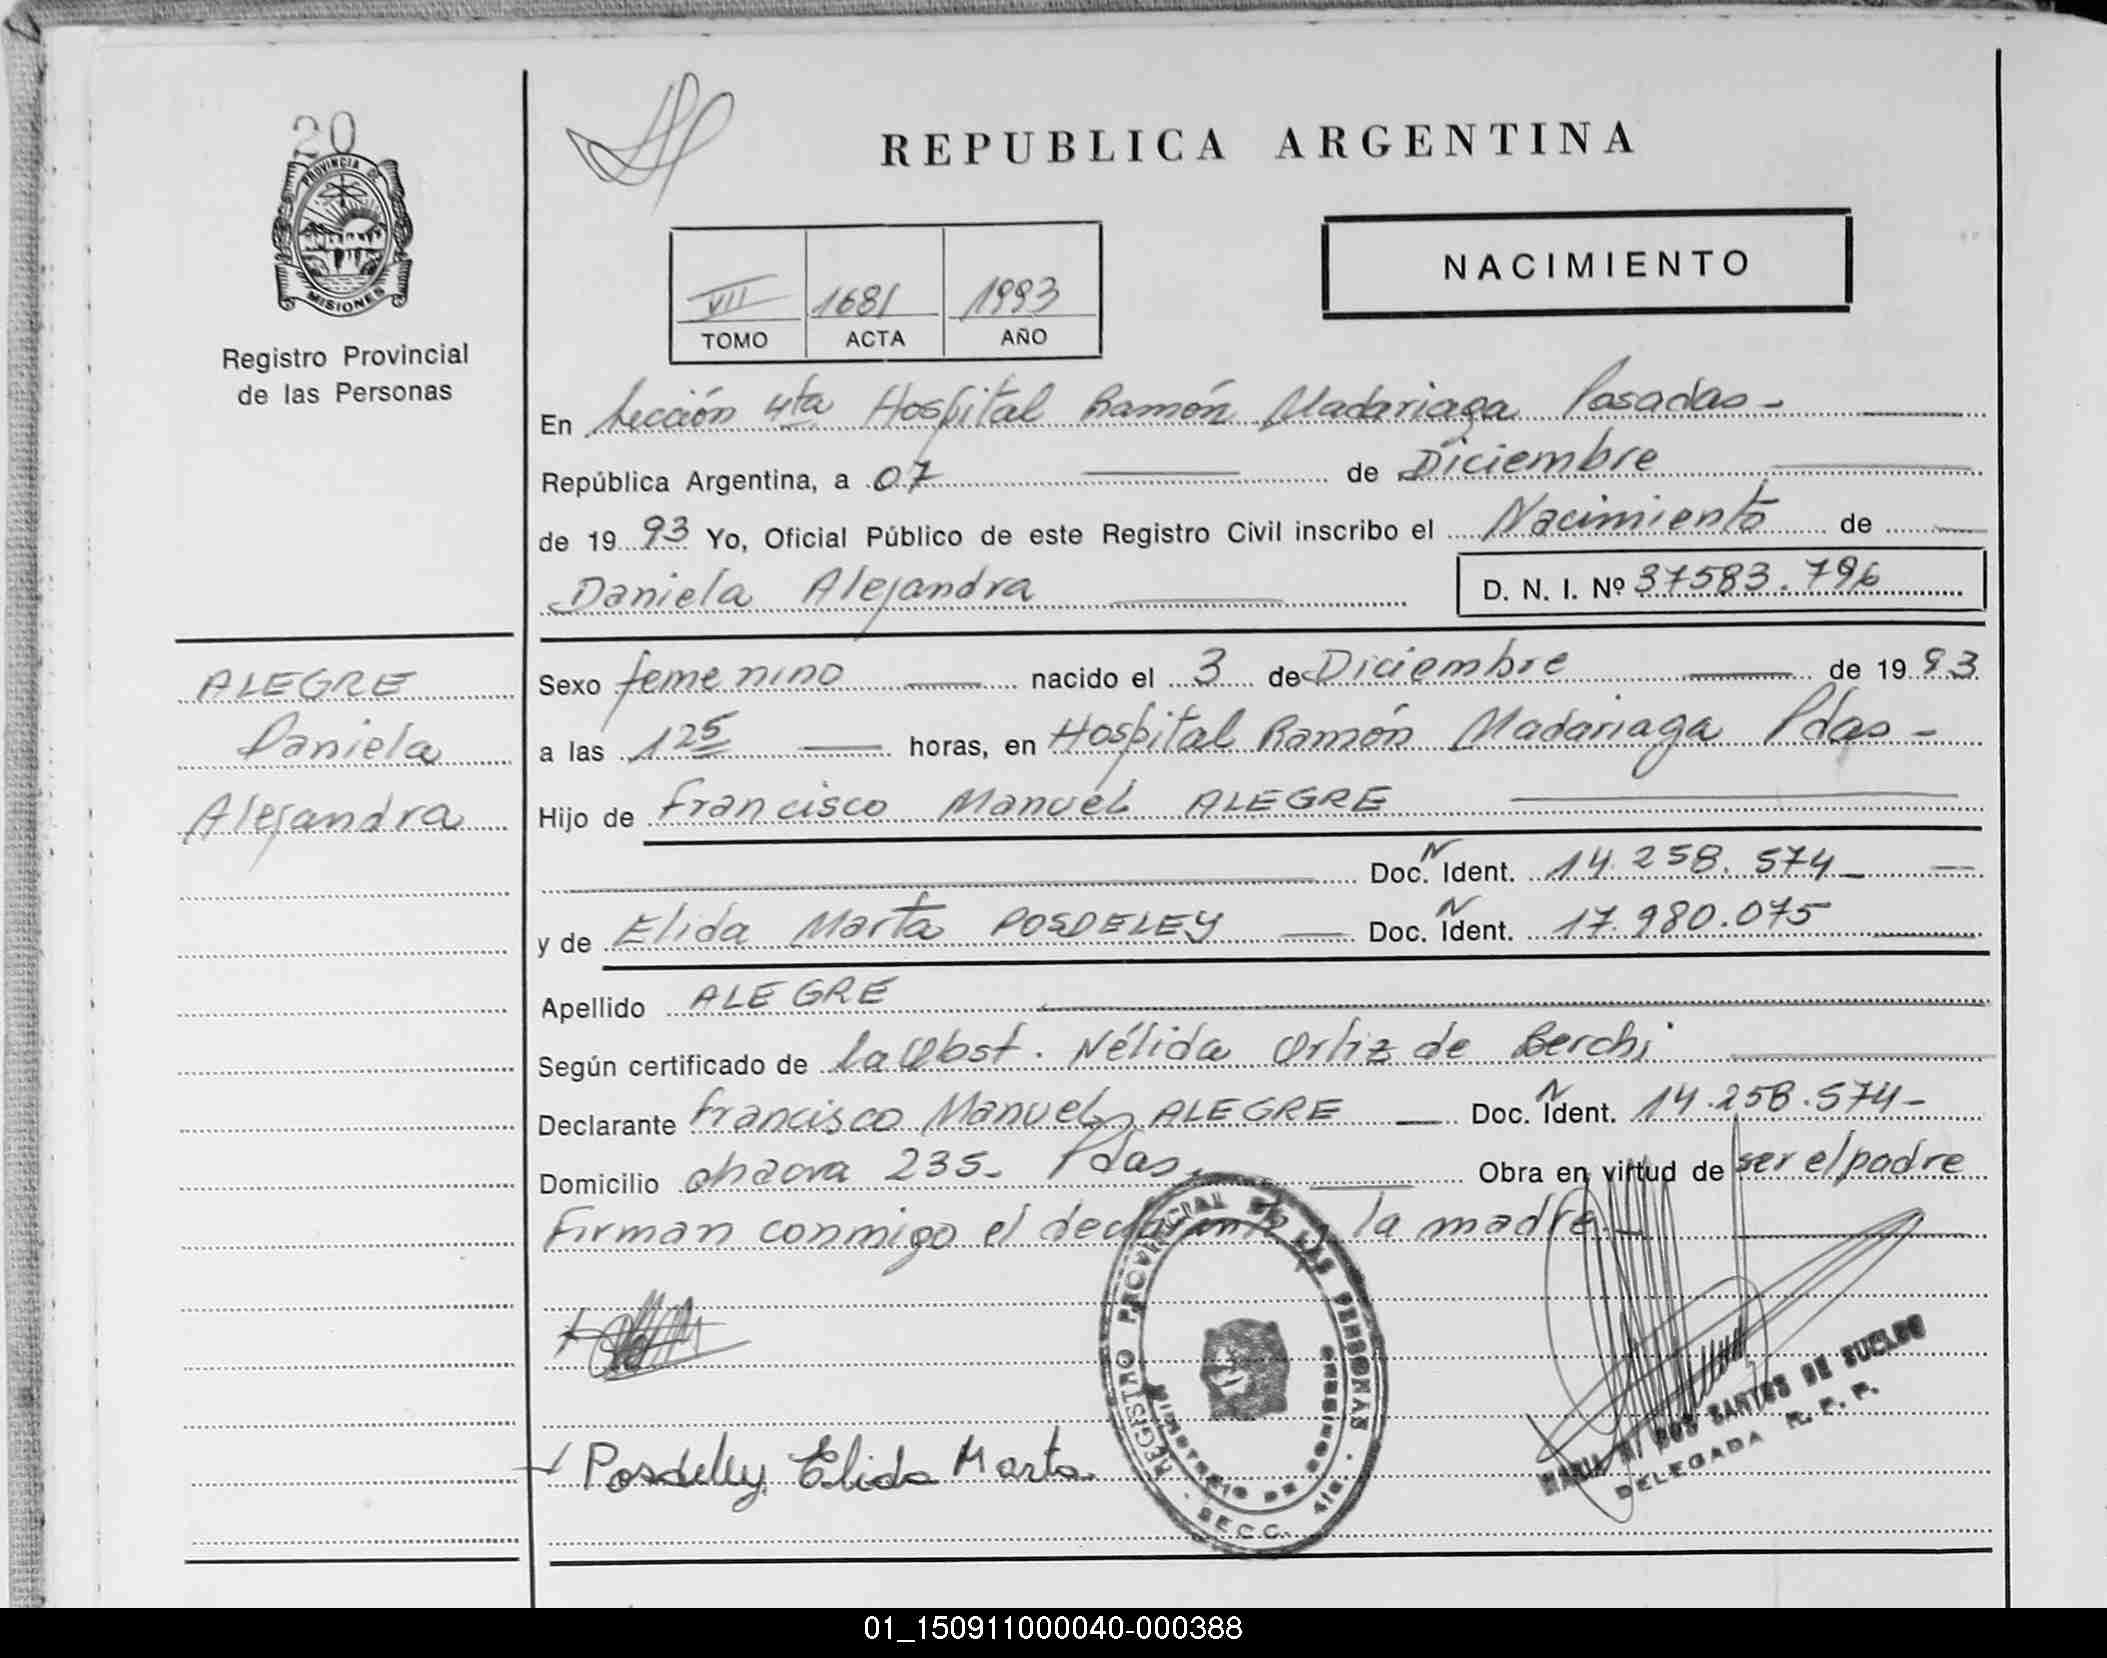 20
PROVINCIA DE
MISIONES
Registro Provincial
de las Personas
REPUBLICA ARGENTINA
NACIMIENTO
VII 1681 1993
TOMO ACTA AÑO
En Sección 4ta Hospital Ramón Madariaga Posadas -
República Argentina, a 07 de Diciembre
de 19 93 Yo, Oficial Público de este Registro Civil inscribo el Nacimiento de
Daniela Alejandra D. N. I. Nº 37583.796
ALEGRE
Daniela
Alejandra
Sexo femenino nacido el 3 de Diciembre de 19 93
a las 1 25 horas, en Hospital Ramón Madariaga Pdas -
Hijo de Francisco Manuel ALEGRE
Doc. N Ident. 14.258.574
y de Elida Marta POSDELEY Doc. N Ident. 17.980.075
Apellido ALEGRE
Según certificado de la Obst. Nélida Ortiz de Berchi
Declarante Francisco Manuel ALEGRE Doc. N Ident. 14.258.574-
Domicilio chacra 235. Pdas. Obra en virtud de ser el padre
Firman conmigo el declarante y la madre.-
Posdeley Elida Marta
REGISTRO PROVINCIAL DE LAS PERSONAS
MINISTERIO DE GOBIERNO
SECC. 4ta.
DOS SANTOS DE SUELDO
DELEGADA R. P. P.
01_150911000040-000388